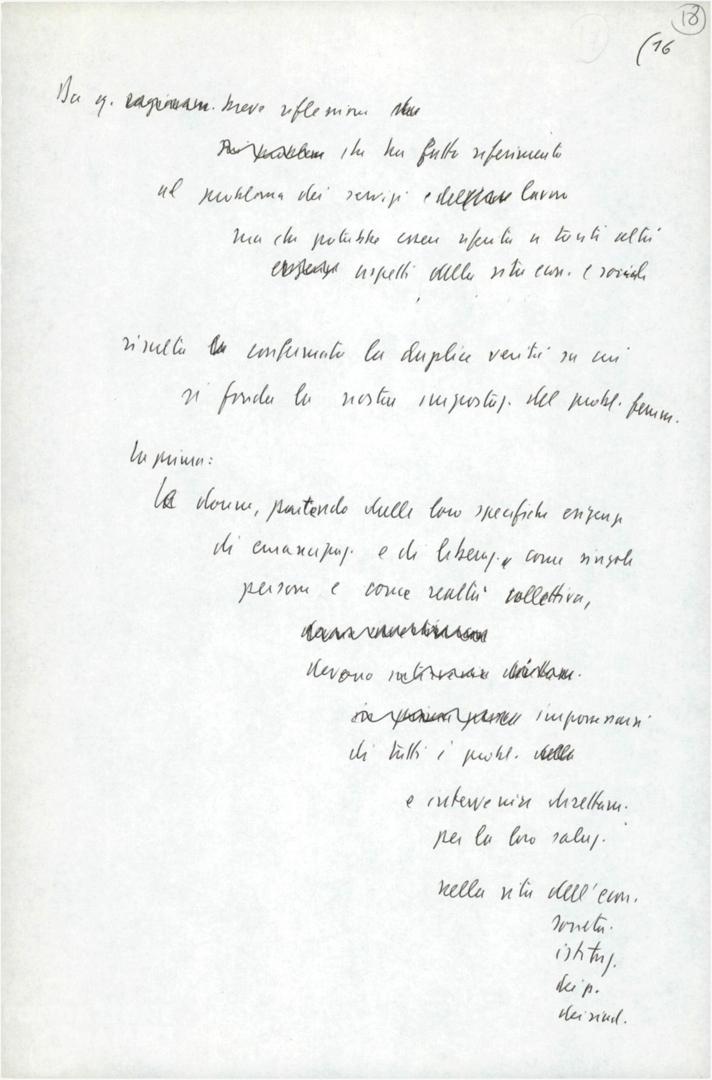 18
(16
Da q. ragionam. breve riflessione
che ha fatto riferimento
al problema dei servizi e del lavoro
ma che potrebbe essere riferita a tanti altri
aspetti della vita econ. e sociale
risulta confermata la duplice verità su cui
si fonda la nostra impostaz. del probl. femm.
La prima:
Le donne, partendo dalle loro specifiche esigenze
di emancipaz. e di liberaz., come singole
persone e come realtà collettiva,
devono
impossessarsi
di tutti i probl.
e intervenire direttam.
per la loro soluz.
nella vita dell'econ.
società.
istituz.
dei p.
dei sind.